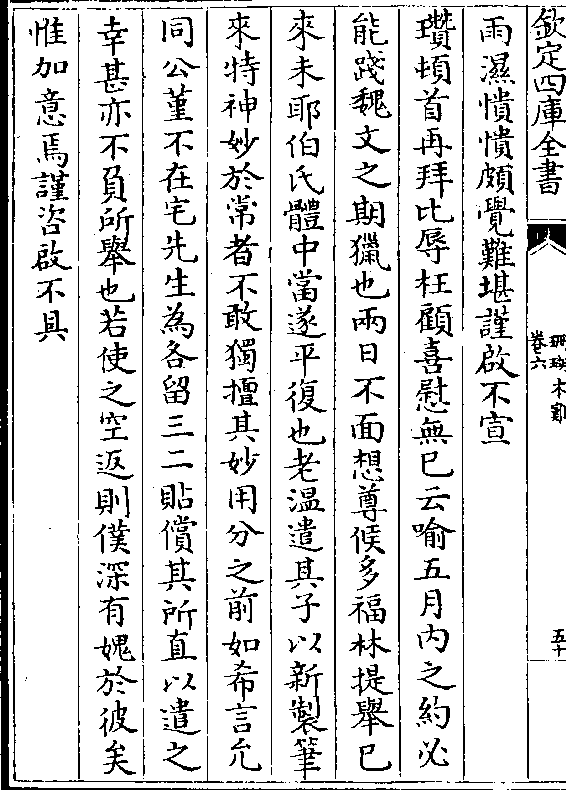 欽定四庫全書
珊瑚木難
卷六
五十
雨濕憒憒頗覺難堪謹啟不宣
瓚頓首再拜比辱枉顧喜慰無已云喻五月内之約必
能踐魏文之期獵也兩日不面想尊候多福林提舉已
來未耶伯氏體中當遂平復也老温遣其子以新製筆
來特神妙於常者不敢獨擅其妙用分之前如希言允
同公菫不在宅先生為各留三二貼償其所直以遣之
幸甚亦不負所舉也若使之空返則僕深有媿於彼矣
惟加意焉謹咨啟不具